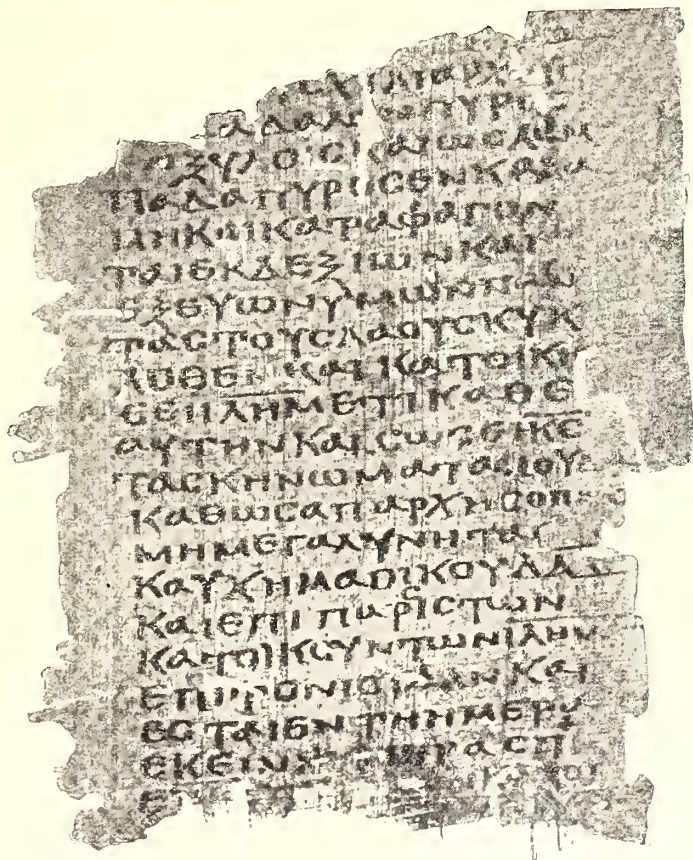 ΧΙΛΙΑΡΧΟΥ
ΔΑΛΟ ΠΥΡΟ
ΞΥΛΟΙC ΚΑΙ ΩC ΛΑΜ
ΠΑΔΑ ΠΥΡΟC ΕΝ ΚΑΛΑ
ΜΗ ΚΑΙ ΚΑΤΑΦΑΓΟΝ
ΤΑΙ ΕΚ ΔΕΞΙΩΝ ΚΑΙ
ΕΞ ΕΥΩΝΥΜΩΝ ΠΑ
ΤΑC ΤΟΥC ΛΑΟΥC ΚΥΚ
ΛΟΘΕΝ ΚΑΙ ΚΑΤΟΙΚΗ
CΕΙ Ι̅Λ̅Η̅Μ̅ ΕΤΙ ΚΑΘ Ε
ΑΥΤΗΝ ΚΑΙ CΩCΕΙ Κ̅C̅
ΤΑ CΚΗΝΩΜΑΤΑ ΙΟΥΔ
ΚΑΘΩC ΑΠ ΑΡΧΗC ΟΠΩ
ΜΗ ΜΕΓΑΛΥΝΗΤΑΙ
ΚΑΥΧΗΜΑ ΟΙΚΟΥ Δ̅Α̅Δ̅
ΚΑΙ ΕΠΙ ΠΑΡCΙC ΤΩΝ
ΚΑΤΟΙΚΟΥΝΤΩΝ Ι̅Λ̅Η̅Μ̅
ΕΠΙ ΤΟΝ ΙΟΥΔΑΝ ΚΑΙ
ΕCΤΑΙ ΕΝ ΤΗ ΗΜΕΡΑ
ΕΚΕΙΝΗ ΥΠΕΡΑCΠΙ